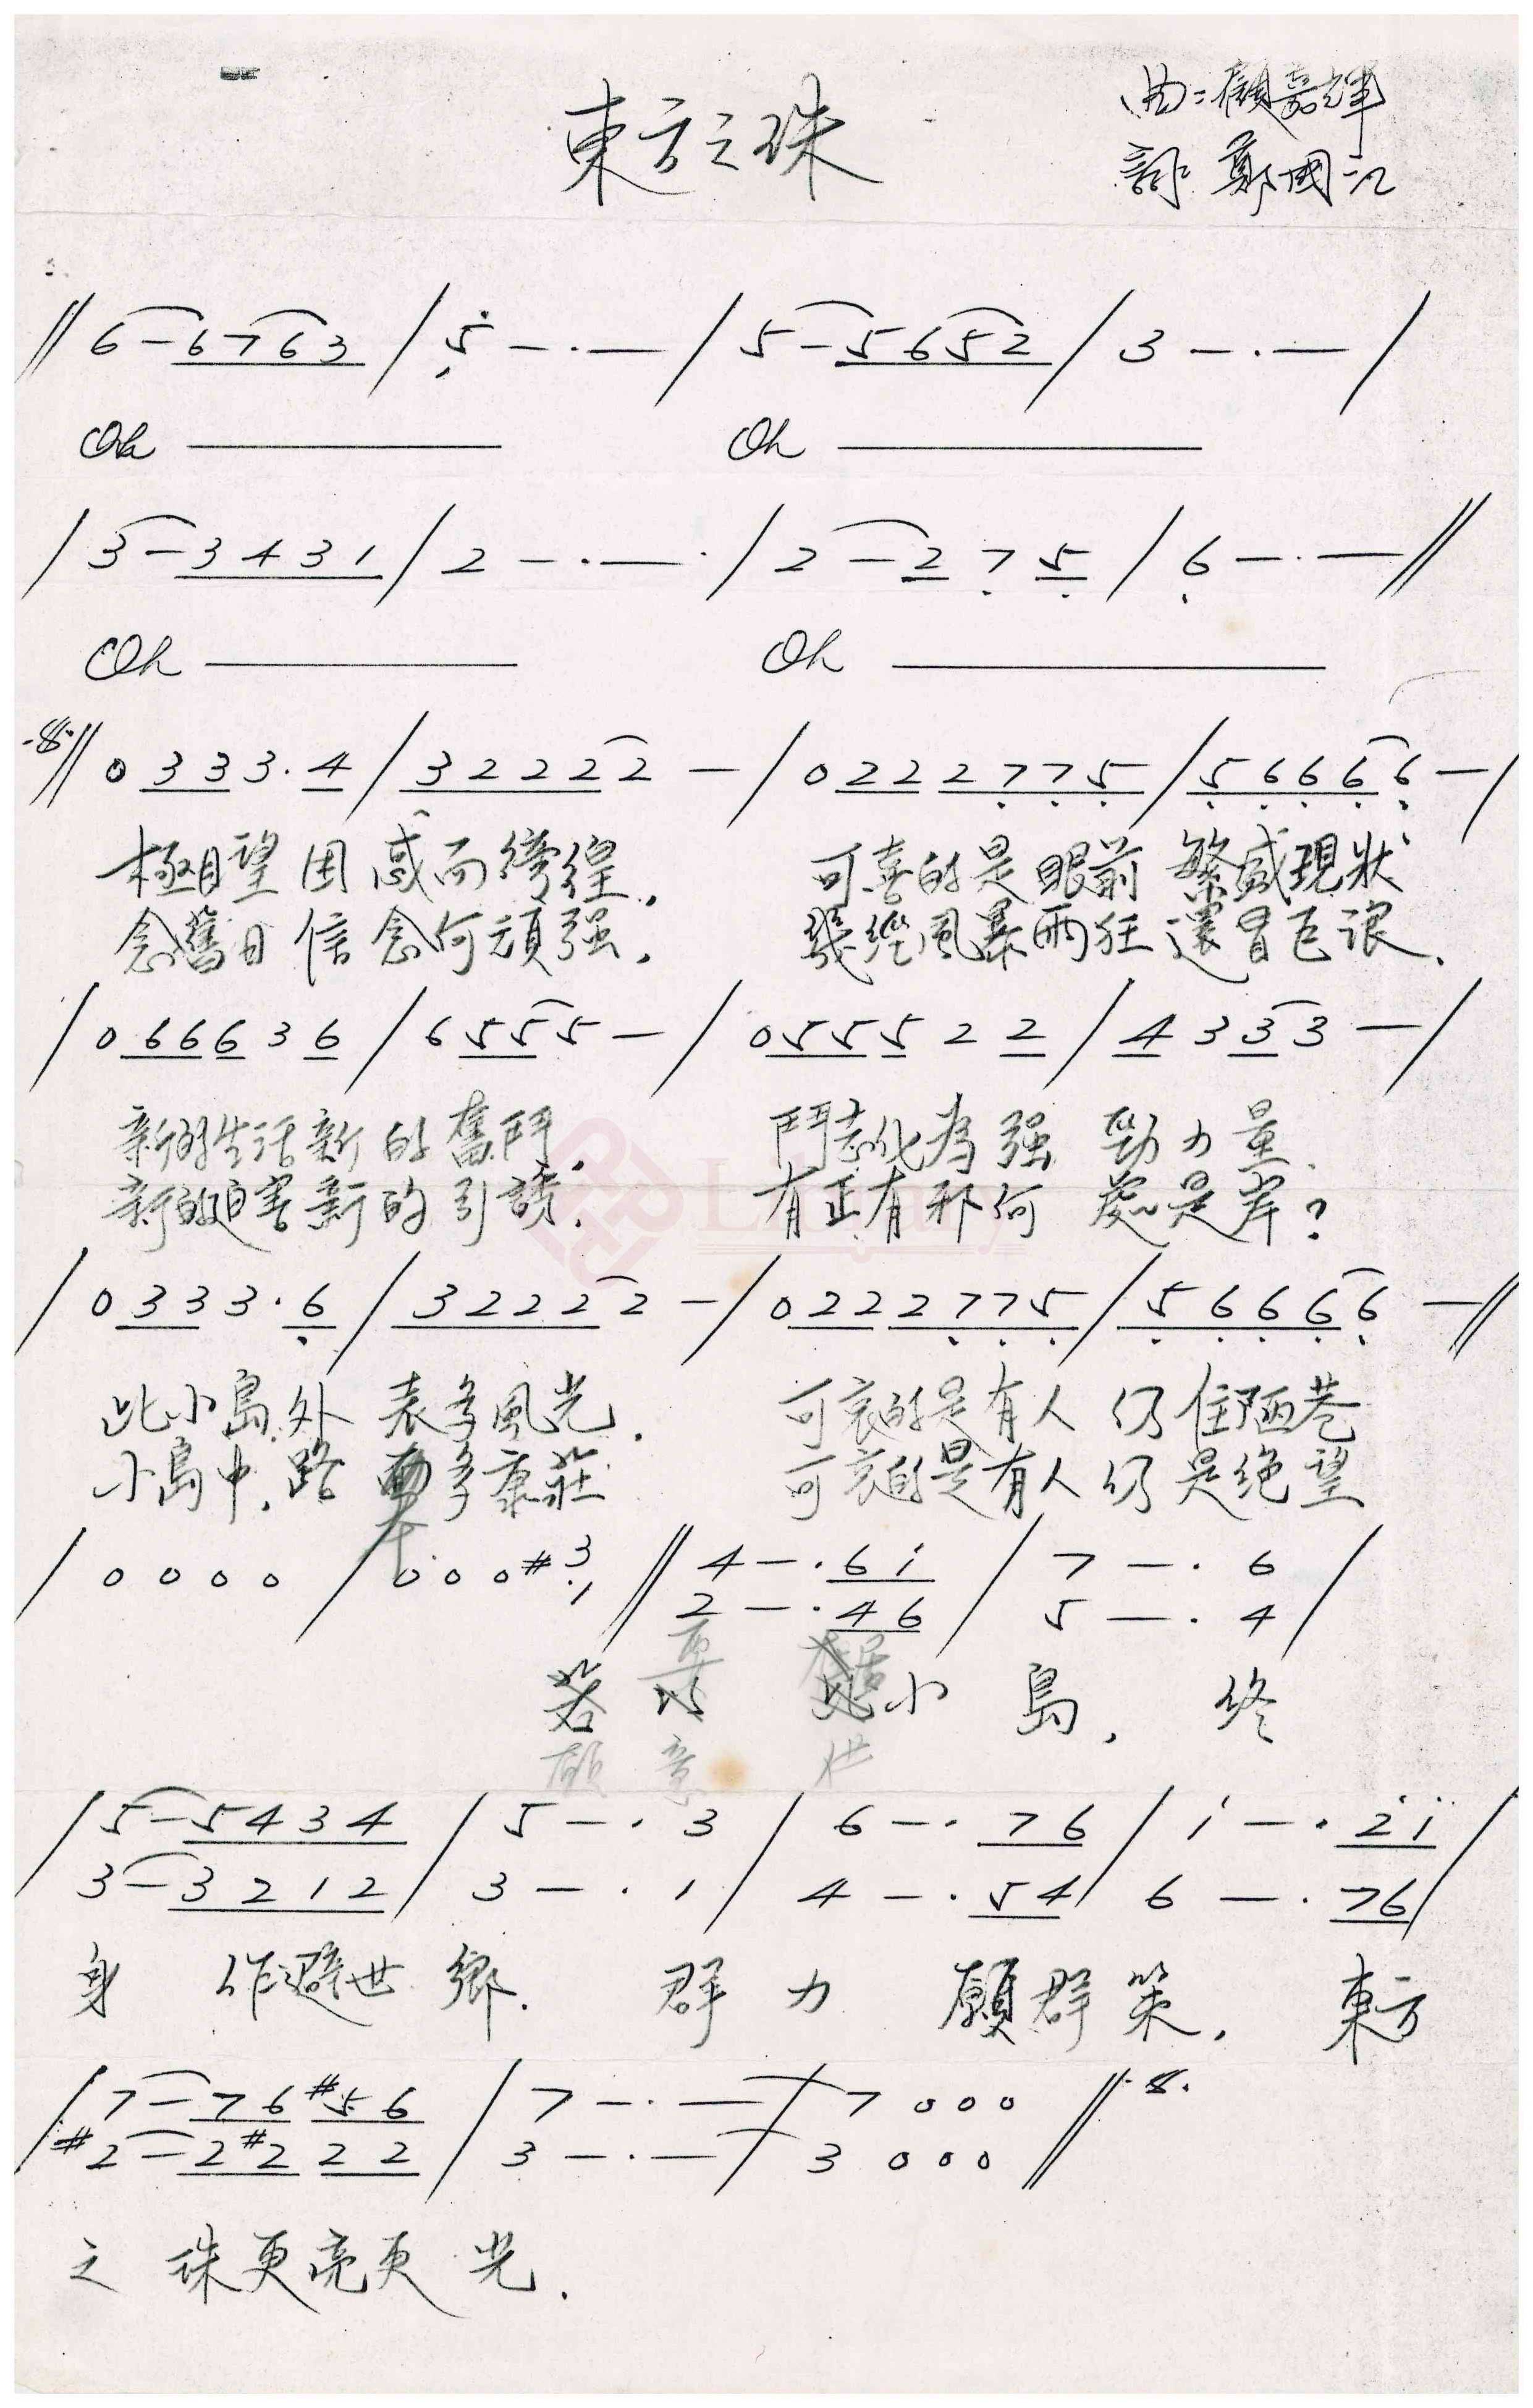 東方之珠
曲：顧嘉輝
詞：鄭國江
// 6 - 6 7 6 3 / 5 - · - / 5 - 5 6 5 2 / 3 - · - /
Oh ——— Oh ———
/ 3 - 3 4 3 1 / 2 - · - / 2 - 2 7 5 / 6 - · - //
Oh ——— Oh ———
·S· // 0 3 3 3 · 4 / 3 2 2 2 2 2 - / 0 2 2 2 7 7 5 / 5 6 6 6 6 - /
極目望困惑而徬徨. 可喜的是眼前繁盛現狀
念舊日信念何頑强. 幾經風暴雨狂還冒巨浪.
/ 0 6 6 6 3 6 / 6 5 5 5 - / 0 5 5 5 2 2 / 4 3 3 3 - /
新的生活新的奮鬥. 鬥志化為强勁力量.
新的迫害新的引誘. 有正有邪何處是岸？
/ 0 3 3 3 · 6 / 3 2 2 2 2 2 - / 0 2 2 2 7 7 5 / 5 6 6 6 6 - //
此小島外表多風光. 可哀的是有人仍住陋巷
小島中.路多康莊 可哀的是有人仍是绝望
/ 0 0 0 0 / 0 0 0 #3 // 4 - · 6 i / 7 - · 6 /
2 - · 4 6 / 5 - · 4 /
若以此小島, 終
願意 世
/ 5 - 5 4 3 4 / 5 - · 3 / 6 - · 7 6 / i - · 2 i /
3 - 3 2 1 2 / 3 - · 1 / 4 - · 5 4 / 6 - · 7 6 /
身作避世鄉. 群力願群策, 東方
/ 7 - 7 6 #5 6 / 7 - · - / 7 0 0 0 // ·S·
#2 - 2 #2 2 2 / 3 - · - / 3 0 0 0 //
之珠更亮更光.
Library